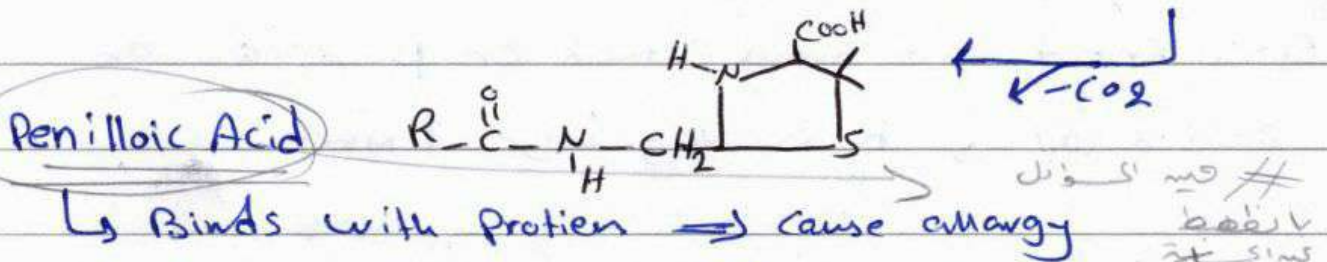 COOH
H-N
-CO2
Penilloic Acid R-C-N-CH2 S
O
H
↳ Binds with Protien ⇒ Cause allargy